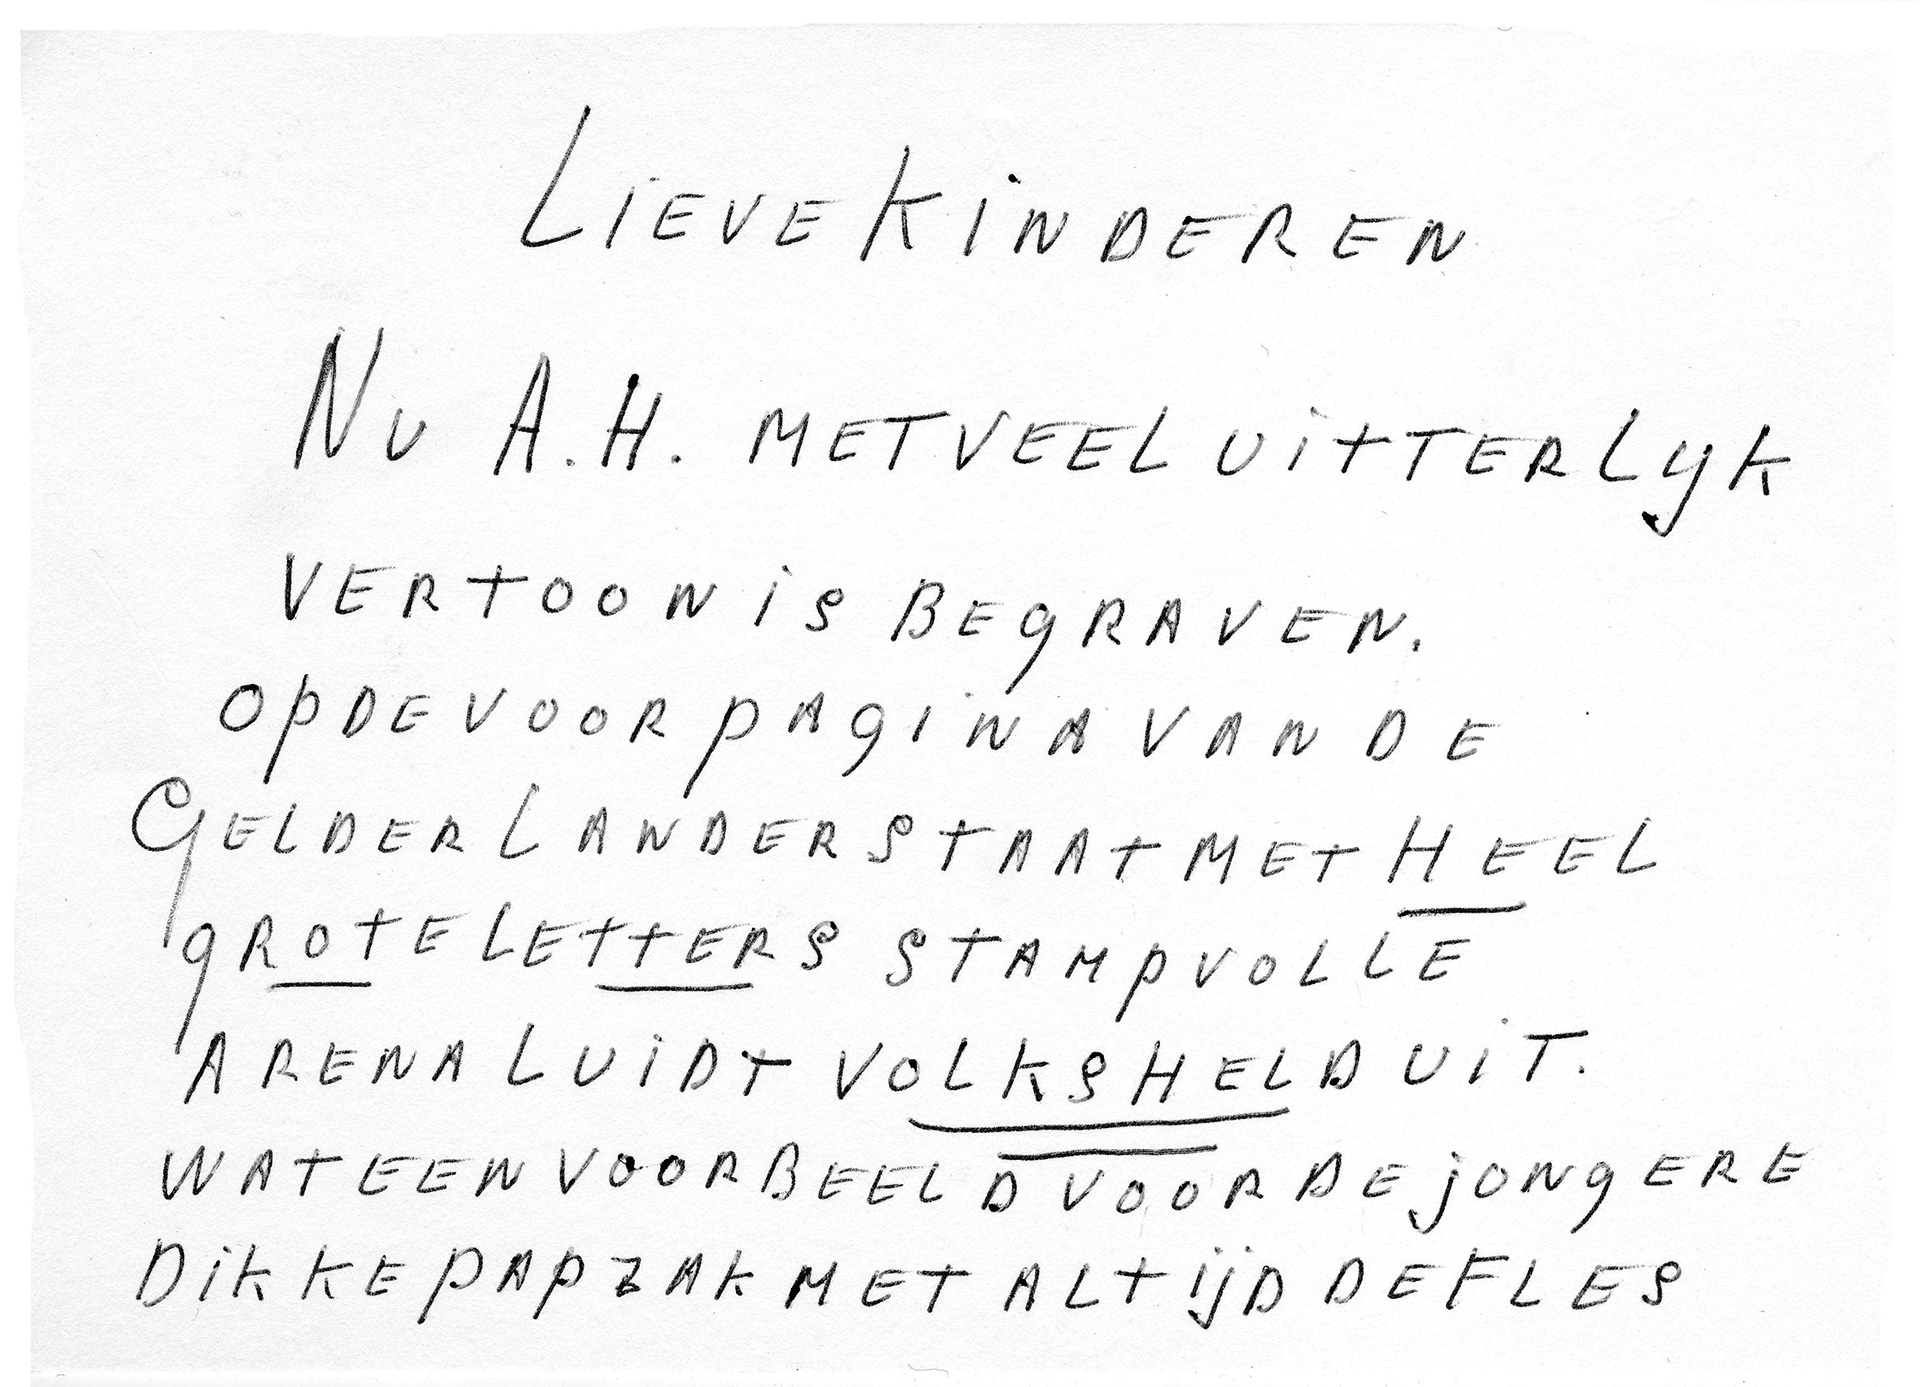 LIEVE KINDEREN
NU A.H. MET VEEL UITTERLYK
VERTOON IS BEGRAVEN.
OP DE VOORPAGINA VAN DE
GELDERLANDER STAAT MET HEEL
GROTE LETTERS STAMPVOLLE
ARENA LUIDT VOLKSHELD UIT.
WAT EEN VOORBEELD VOOR DE JONGERE
DIKKE PAPZAK MET ALTIJD DE FLES